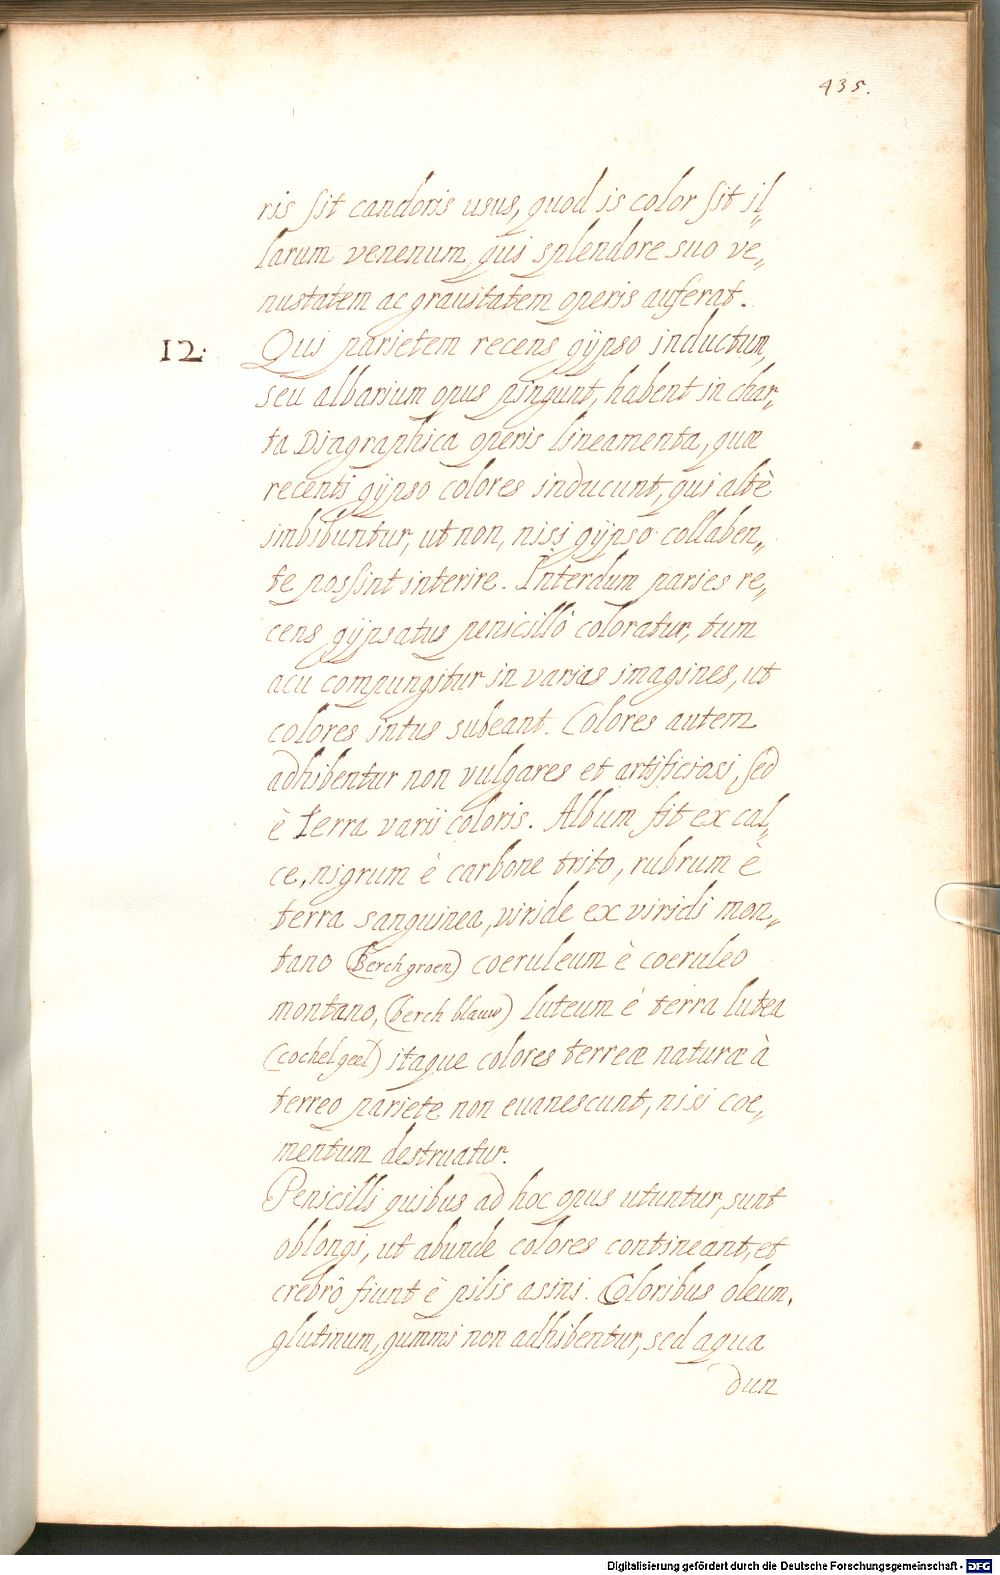 435.
ris sit candoris usus, quod is color sit il„
larum venenum qui splendore suo ve„
nustatem ac grauitatem operis auferat.
12. Qui parietem recens gÿpso inductum,
seu albarium opus pingunt, habent in char„
ta Diagraphica operis lineamenta, quæ
recenti gÿpso colores inducunt, qui altè
imbibuntur, ut non, nisi gÿpso collaben„
te possint interire. Interdum paries re„
cens gÿpsatus penicillô coloratur, tum
acu compungitur in varias imagines, ut
colores intus subeant. Colores autem
adhibentur non vulgares et artificiosi, sed
è terra varii coloris. Album fit ex cal„
ce, nigrum è carbone trito, rubrum è
terra sanguinea, viride ex viridi mon„
tano (berch groen) coeruleum è coeruleo
montano, (berch blauw) luteum è terra lutea
(cochel geel) itaque colores terreæ naturæ à
terreo pariete non euanescunt, nisi coe„
mentum destruatur.
Penicilli quibus ad hoc opus utuntur, sunt
oblongi, ut abunde colores contineant, et
crebrô fiunt è pilis asini. Coloribus oleum,
glutinum, gummi non adhibentur, sed aqua
dun
Digitalisierung gefördert durch die Deutsche Forschungsgemeinschaft - DFG